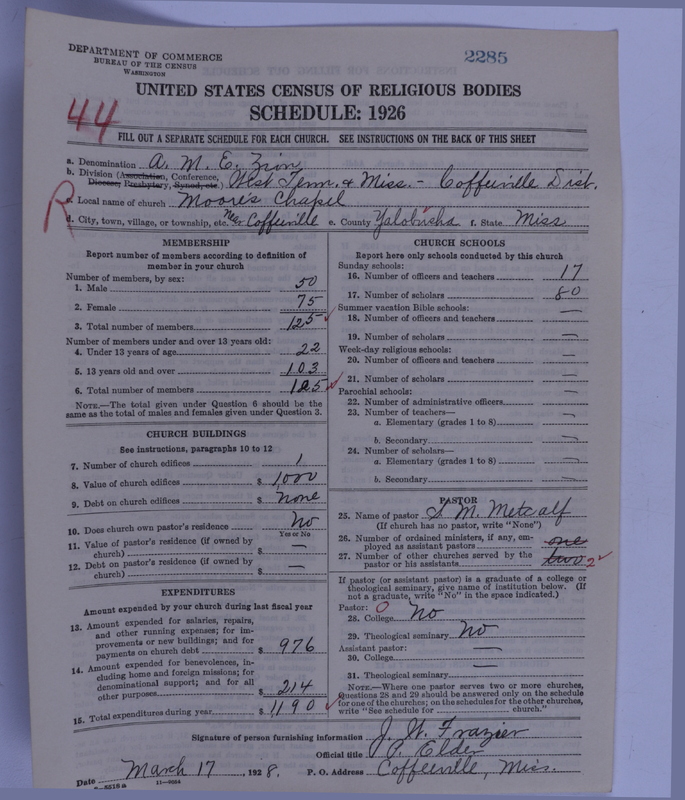 DEPARTMENT OF COMMERCE
BUREAU OF THE CENSUS
WASHINGTON
2285
UNITED STATES CENSUS OF RELIGIOUS BODIES
SCHEDULE: 1926
44
FILL OUT A SEPARATE SCHEDULE FOR EACH CHURCH. SEE INSTRUCTIONS ON THE BACK OF THIS SHEET
a. Denomination A. M. E. Zion
b. Division (Association, Conference, Diocese, Presbytery, Synod, etc.) West Tenn. & Miss. - Coffeeville Dist.
R
c. Local name of church Moore's Chapel
d. City, town, village, or township, etc. Near Coffeeville e. County Yalobusha f. State Miss
MEMBERSHIP
Report number of members according to definition of
member in your church
Number of members, by sex:
1. Male 50
2. Female 75
3. Total number of members 125
Number of members under and over 13 years old:
4. Under 13 years of age 22
5. 13 years old and over 103
6. Total number of members 125
NOTE.—The total given under Question 6 should be the
same as the total of males and females given under Question 3.
CHURCH BUILDINGS
See instructions, paragraphs 10 to 12
7. Number of church edifices 1
8. Value of church edifices $ 1000
9. Debt on church edifices $ none
10. Does church own pastor's residence No
Yes or No
11. Value of pastor's residence (if owned by
church) $ —
12. Debt on pastor's residence (if owned by
church) $ —
EXPENDITURES
Amount expended by your church during last fiscal year
13. Amount expended for salaries, repairs,
and other running expenses; for im-
provements or new buildings; and for
payments on church debt $ 976
14. Amount expended for benevolences, in-
cluding home and foreign missions; for
denominational support; and for all
other purposes $ 214
15. Total expenditures during year $ 1190
CHURCH SCHOOLS
Report here only schools conducted by this church
Sunday schools:
16. Number of officers and teachers 17
17. Number of scholars 80
Summer vacation Bible schools:
18. Number of officers and teachers —
19. Number of scholars —
Week-day religious schools:
20. Number of officers and teachers —
21. Number of scholars —
Parochial schools:
22. Number of administrative officers —
23. Number of teachers—
a. Elementary (grades 1 to 8) —
b. Secondary —
24. Number of scholars—
a. Elementary (grades 1 to 8) —
b. Secondary —
PASTOR
25. Name of pastor S. M. Metcalf
(If church has no pastor, write "None")
26. Number of ordained ministers, if any, em-
ployed as assistant pastors one
27. Number of other churches served by the
pastor or his assistants two 2
If pastor (or assistant pastor) is a graduate of a college or
theological seminary, give name of institution below. (If
not a graduate, write "No" in the space indicated.)
Pastor: O
28. College No
29. Theological seminary No
Assistant pastor:
30. College —
31. Theological seminary —
NOTE.—Where one pastor serves two or more churches,
Questions 28 and 29 should be answered only on the schedule
for one of the churches; on the schedules for the other churches,
write "See schedule for church."
Signature of person furnishing information J. W. Frazier
Official title P. Elder
Date March 17, 1928. P. O. Address Coffeeville, Miss.
11—9064